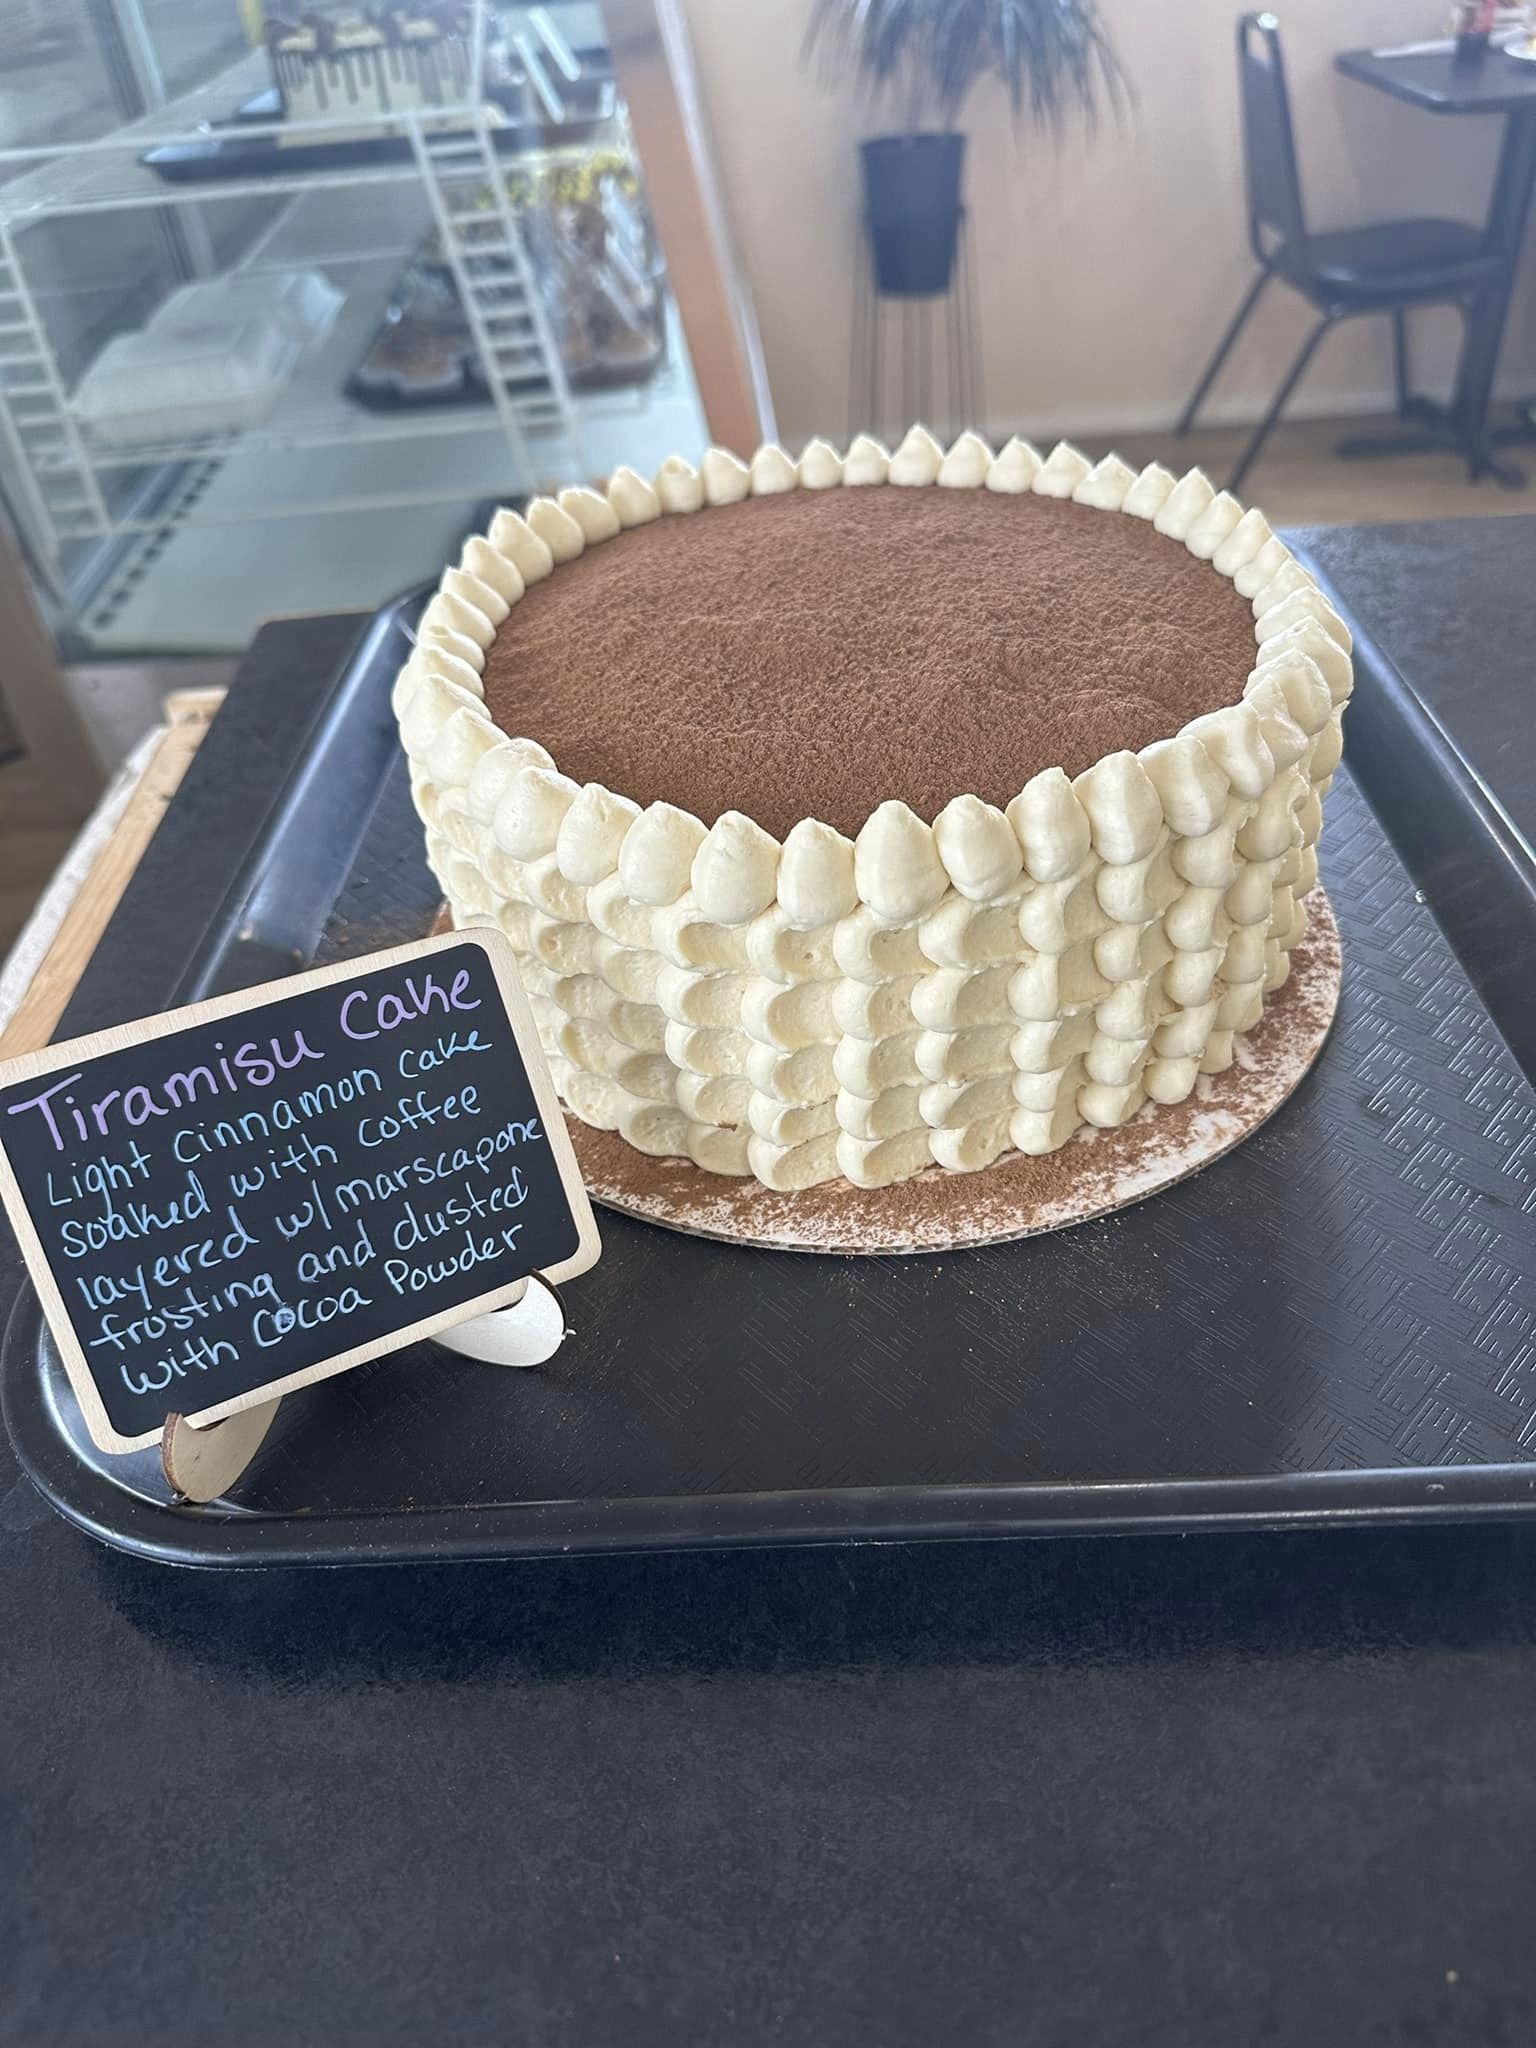 Tiramisu Cake
Light cinnamon cake
soaked with coffee
layered w/ marscapone
frosting and dusted
with cocoa Powder